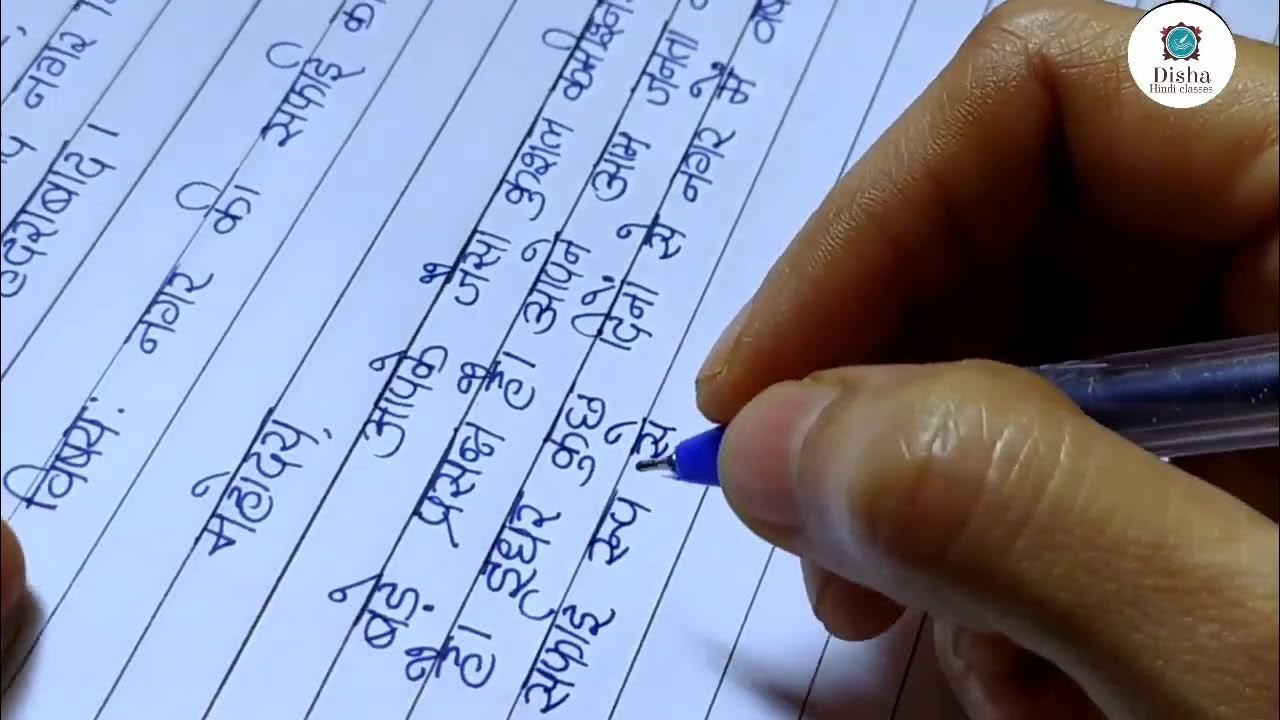 नगर
हैदराबाद।
विषय: नगर की सफाई
महोदय,
आपके जैसा कुशल
बड़े प्रसन्न हैं। आपने आम जनता
हैं। इधर कुछ दिनों से नगर में
सफाई रूप से
Disha
Hindi classes